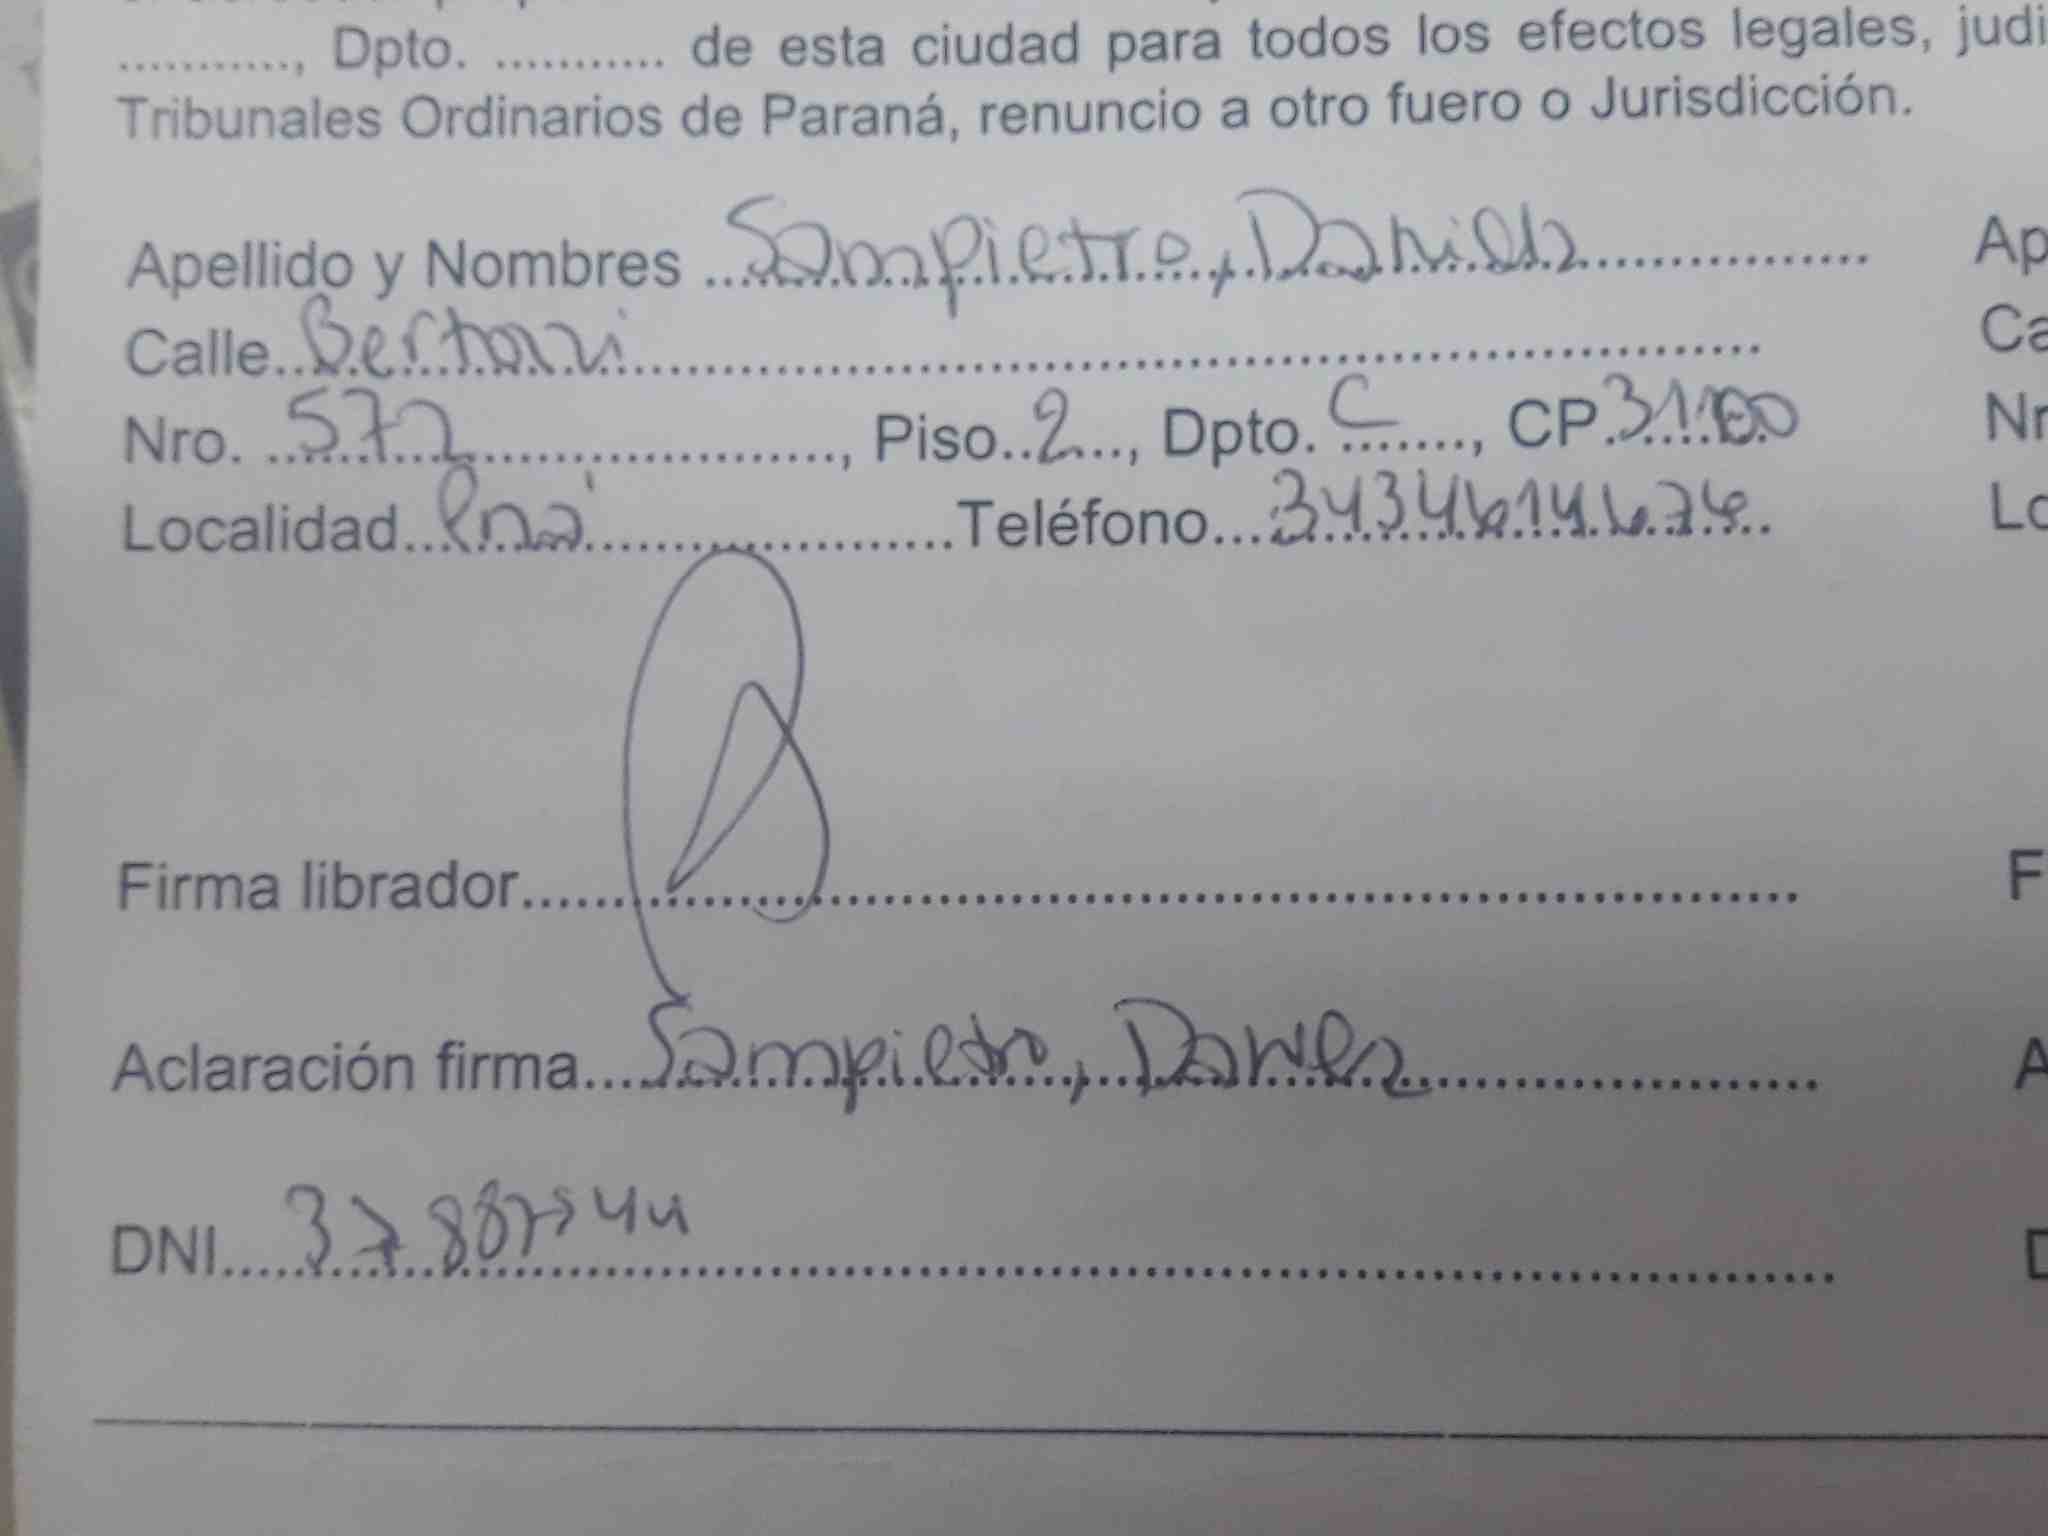 ..........., Dpto. ........... de esta ciudad para todos los efectos legales, judi
Tribunales Ordinarios de Paraná, renuncio a otro fuero o Jurisdicción.
Apellido y Nombres Sampietro, Daniela Ap
Calle Ca
Nro. 572, Piso 2, Dpto. C, CP 3100 Nr
Localidad Pná Teléfono 3434614676 Lo
Firma librador F
Aclaración firma Sampietro, Daniela A
DNI D